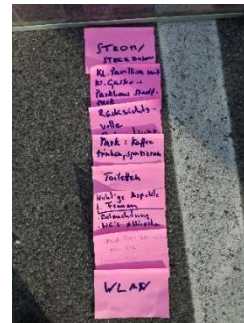 STROM/
STECKDOSEN
Kl. Pavillion mit
kl. Gastro -
Parkhaus Stadt-
park
Rücksichts-
volle
Park: Kaffee
trinken, spazieren
Toiletten
Wichtige Aspekte
f. Frauen
Beleuchtung
WC's
WLAN